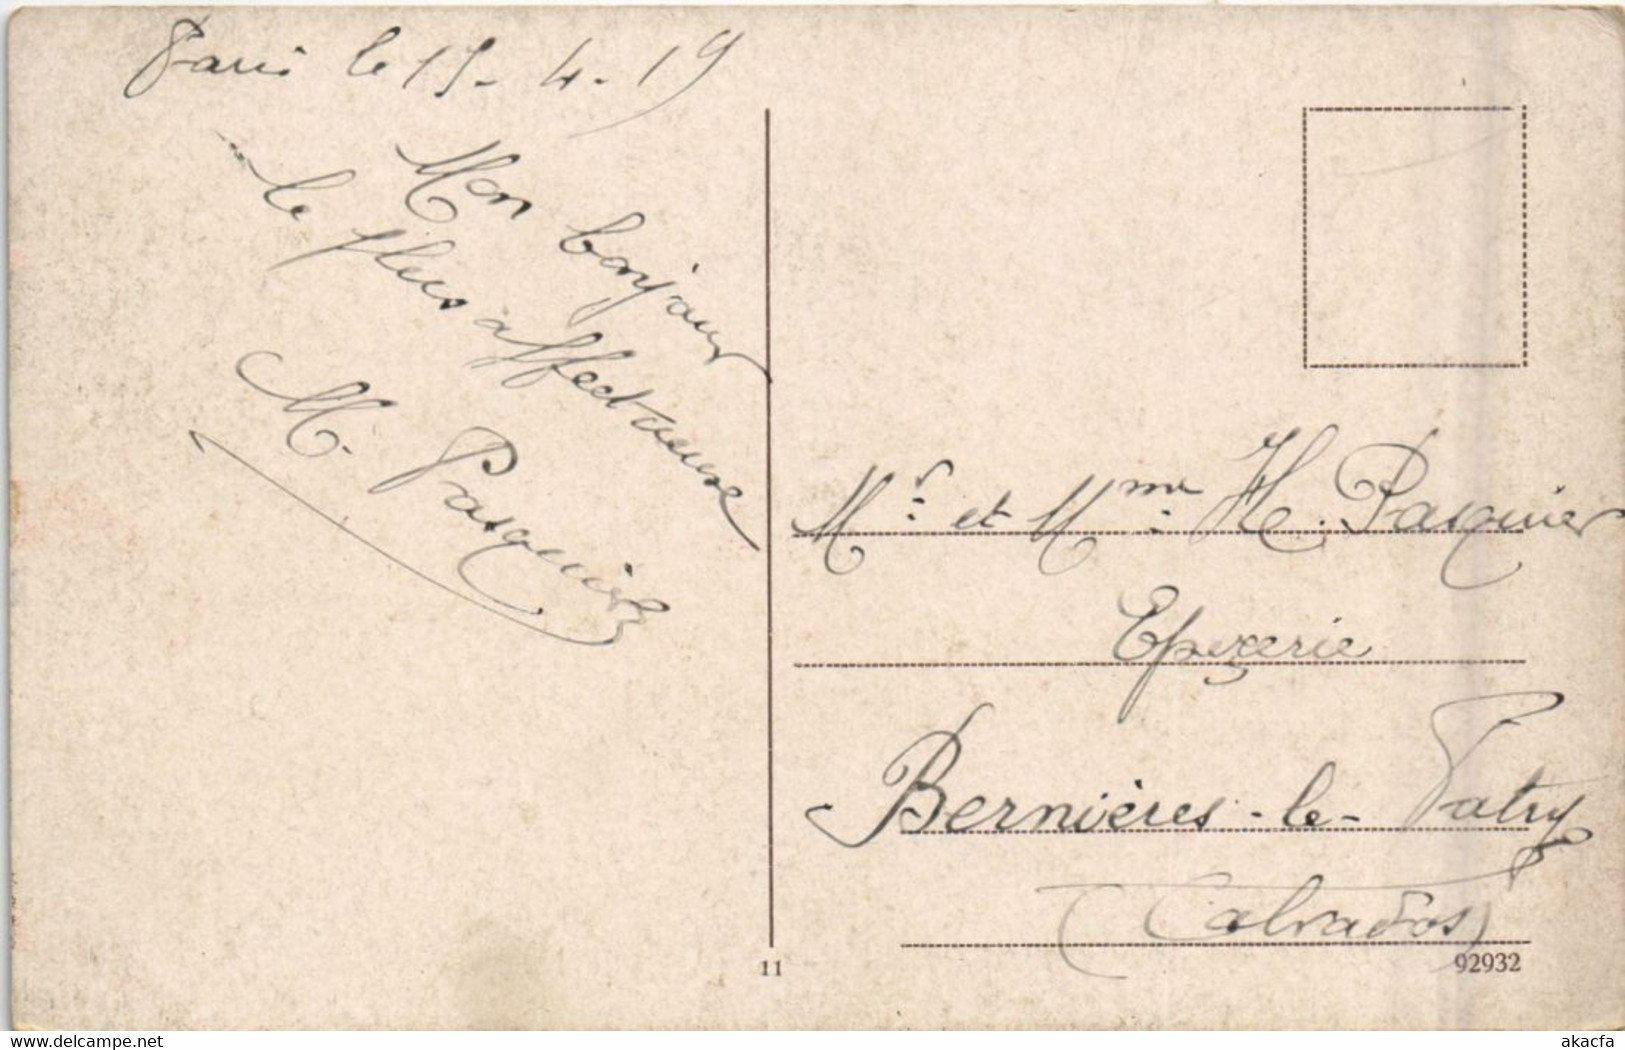 Paris le 15-4-19
Mon bonjour
le plus affectueuse
M. Pasquier
Mr. et Mme. H. Pasquier
Epicerie
Bernières-le-Patry
(Calvados)
11
92932
https://www.delcampe.net
akacfa